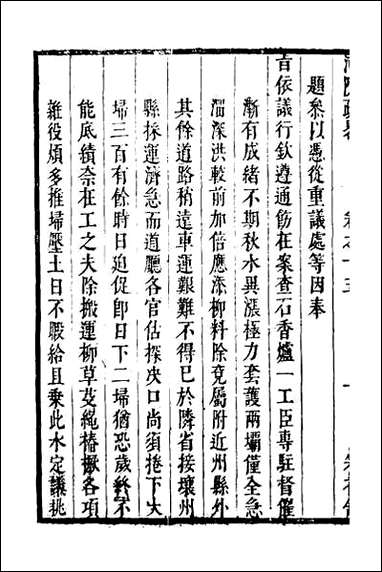 題叅以憑從重議處等因奉
旨依議行欽遵通飭在案查石香爐一工臣專駐督催
漸有成緒不期秋水異漲極力套護兩壩僅全急
溜深洪較前加倍應添柳料除兗屬附近州縣外
其餘道路稍遠車運艱難不得已於隣省接壤州
縣採運濟急而道廳各官估探决口尚須捲下大
埽三百有餘時日迫促卽日下二埽猶恐歲終不
能底績奈在工之夫除搬運柳草芟繩樁橛各項
雜役煩多推埽壓土日不暇給且乗此水定議挑